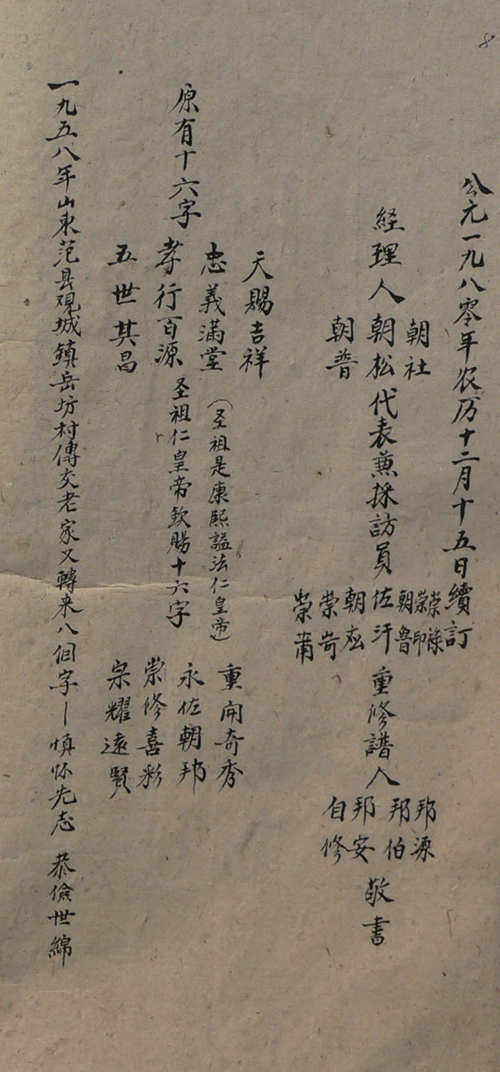 8
公元一九八零年农历十二月十五日續訂
経理人
朝社
朝松
朝普
代表兼採訪員
荣禄
荣印
朝魯
佐汗
朝
荣苛
荣莆
重修譜人
邦源
邦伯
邦安
自修
敬書
原有十六字
天賜吉祥
忠義滿堂
孝行百源
五世其昌
(圣祖是康熙謚法仁皇帝)
圣祖仁皇帝欽賜十六字
重開奇秀
永佐朝邦
崇修喜彩
宗耀遠賢
一九五八年山東范县观城鎮岳坊村傳交老家又轉来八個字－慎怀先志 恭儉世綿